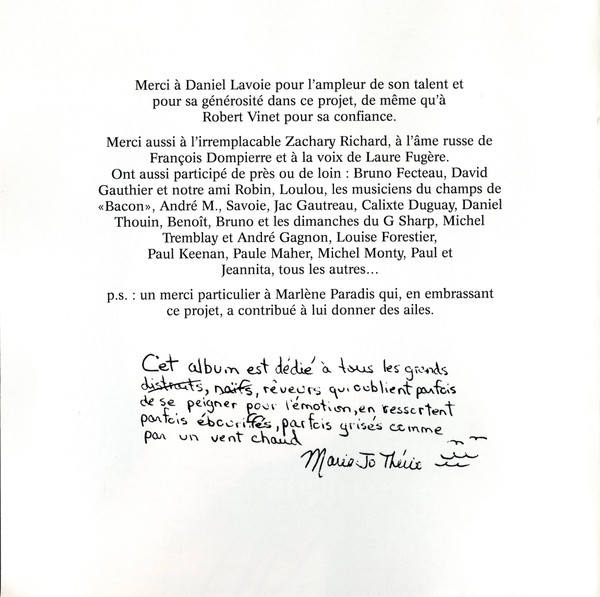 Merci à Daniel Lavoie pour l'ampleur de son talent et
pour sa générosité dans ce projet, de même qu'à
Robert Vinet pour sa confiance.
Merci aussi à l'irremplacable Zachary Richard, à l'âme russe de
François Dompierre et à la voix de Laure Fugère.
Ont aussi participé de près ou de loin : Bruno Fecteau, David
Gauthier et notre ami Robin, Loulou, les musiciens du champs de
«Bacon», André M., Savoie, Jac Gautreau, Calixte Duguay, Daniel
Thouin, Benoît, Bruno et les dimanches du G Sharp, Michel
Tremblay et André Gagnon, Louise Forestier,
Paul Keenan, Paule Maher, Michel Monty, Paul et
Jeannita, tous les autres...
p.s. : un merci particulier à Marlène Paradis qui, en embrassant
ce projet, a contribué à lui donner des ailes.
Cet album est dédié à tous les grands
distraits, naïfs, rêveurs qui oublient parfois
de se peigner pour l'émotion, en ressortent
parfois ébouriffés, parfois grisés comme
par un vent chaud
Marie-Jo Thério